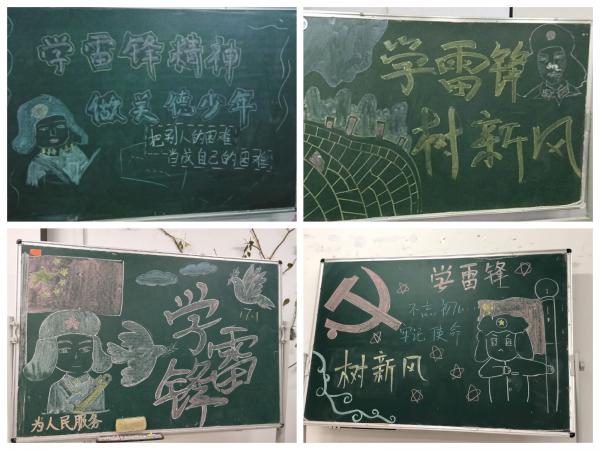 学雷锋精神
做美德少年
把别人的困难
当成自己的困难
学雷锋
树新风
学雷锋
17-1
为人民服务
学雷锋
不忘初心
牢记使命
树新风